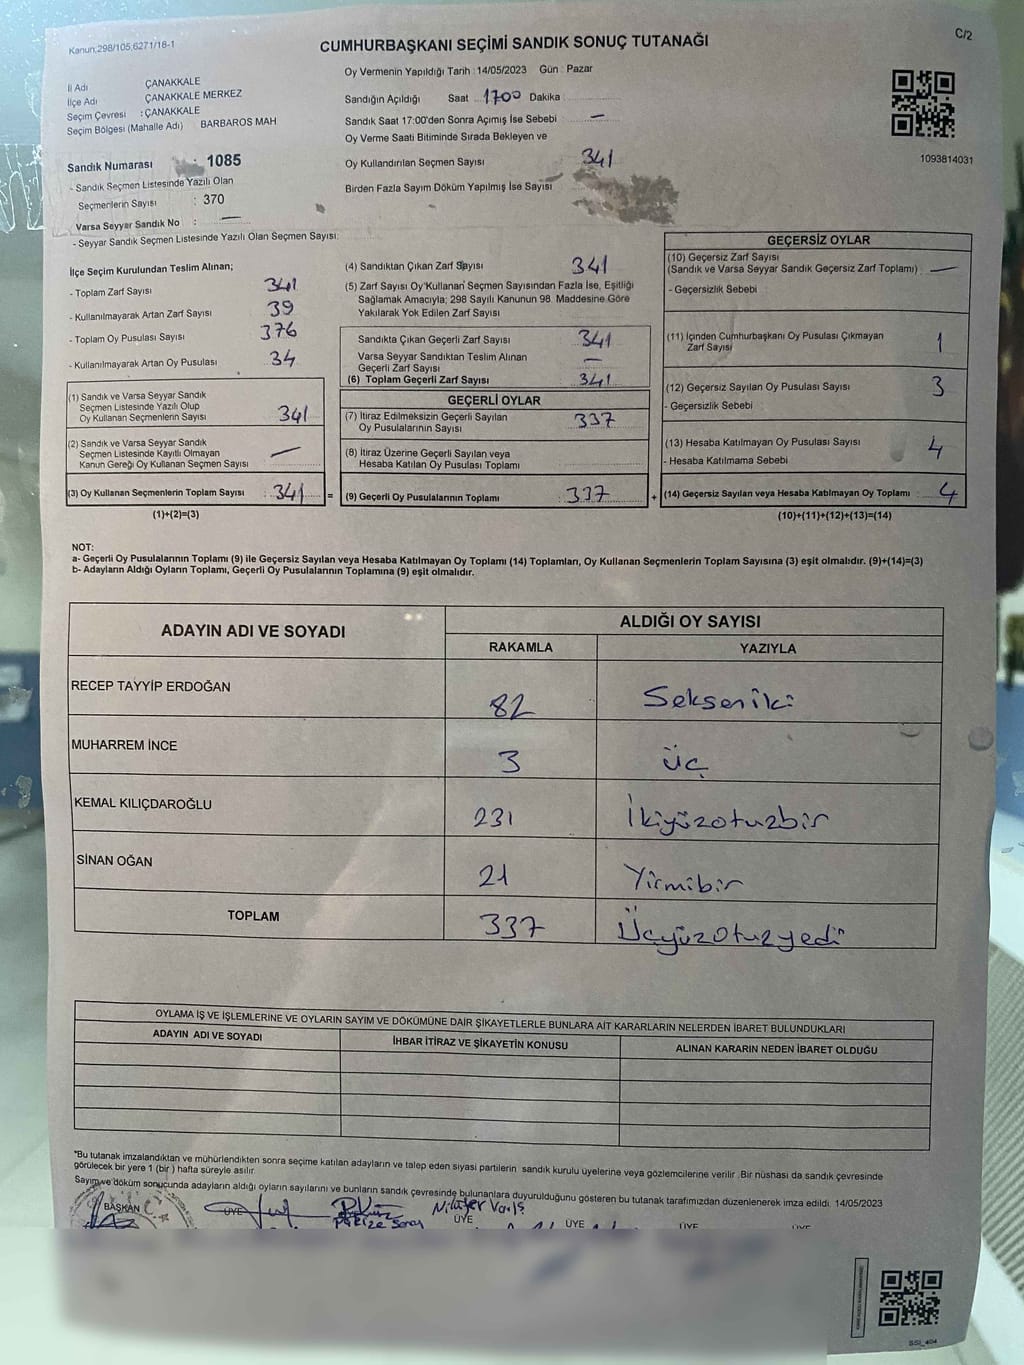 Kanun:298/105;6271/18-1
C/2
CUMHURBAŞKANI SEÇİMİ SANDIK SONUÇ TUTANAĞI
İl Adı ÇANAKKALE
İlçe Adı ÇANAKKALE MERKEZ
Seçim Çevresi : ÇANAKKALE
Seçim Bölgesi (Mahalle Adı) BARBAROS MAH
Sandık Numarası 1085
- Sandık Seçmen Listesinde Yazılı Olan
Seçmenlerin Sayısı : 370
Varsa Seyyar Sandık No : —
- Seyyar Sandık Seçmen Listesinde Yazılı Olan Seçmen Sayısı:
Oy Vermenin Yapıldığı Tarih : 14/05/2023 Gün : Pazar
Sandığın Açıldığı Saat 1700 Dakika
Sandık Saat 17:00'den Sonra Açımış İse Sebebi —
Oy Verme Saati Bitiminde Sırada Bekleyen ve
Oy Kullandırılan Seçmen Sayısı 341
Birden Fazla Sayım Döküm Yapılmış İse Sayısı
1093814031
İlçe Seçim Kurulundan Teslim Alınan;
- Toplam Zarf Sayısı 341
- Kullanılmayarak Artan Zarf Sayısı 39
- Toplam Oy Pusulası Sayısı 376
- Kullanılmayarak Artan Oy Pusulası 34
(1) Sandık ve Varsa Seyyar Sandık
Seçmen Listesinde Yazılı Olup
Oy Kullanan Seçmenlerin Sayısı 341
(2) Sandık ve Varsa Seyyar Sandık
Seçmen Listesinde Kayıtlı Olmayan
Kanun Gereği Oy Kullanan Seçmen Sayısı —
(3) Oy Kullanan Seçmenlerin Toplam Sayısı : 341 =
(1)+(2)=(3)
(4) Sandıktan Çıkan Zarf Sayısı 341
(5) Zarf Sayısı Oy Kullanan Seçmen Sayısından Fazla İse, Eşitliği
Sağlamak Amacıyla; 298 Sayılı Kanunun 98. Maddesine Göre
Yakılarak Yok Edilen Zarf Sayısı
Sandıkta Çıkan Geçerli Zarf Sayısı 341
Varsa Seyyar Sandıktan Teslim Alınan
Geçerli Zarf Sayısı —
(6) Toplam Geçerli Zarf Sayısı 341
GEÇERLİ OYLAR
(7) İtiraz Edilmeksizin Geçerli Sayılan
Oy Pusulalarının Sayısı 337
(8) İtiraz Üzerine Geçerli Sayılan veya
Hesaba Katılan Oy Pusulası Toplamı
(9) Geçerli Oy Pusulalarının Toplamı : 337 +
GEÇERSİZ OYLAR
(10) Geçersiz Zarf Sayısı
(Sandık ve Varsa Seyyar Sandık Geçersiz Zarf Toplamı) —
- Geçersizlik Sebebi
(11) İçinden Cumhurbaşkanı Oy Pusulası Çıkmayan
Zarf Sayısı 1
(12) Geçersiz Sayılan Oy Pusulası Sayısı 3
- Geçersizlik Sebebi
(13) Hesaba Katılmayan Oy Pusulası Sayısı 4
- Hesaba Katılmama Sebebi
(14) Geçersiz Sayılan veya Hesaba Katılmayan Oy Toplamı : 4
(10)+(11)+(12)+(13)=(14)
NOT:
a- Geçerli Oy Pusulalarının Toplamı (9) ile Geçersiz Sayılan veya Hesaba Katılmayan Oy Toplamı (14) Toplamları, Oy Kullanan Seçmenlerin Toplam Sayısına (3) eşit olmalıdır. (9)+(14)=(3)
b- Adayların Aldığı Oyların Toplamı, Geçerli Oy Pusulalarının Toplamına (9) eşit olmalıdır.
ADAYIN ADI VE SOYADI
ALDIĞI OY SAYISI
RAKAMLA YAZIYLA
RECEP TAYYİP ERDOĞAN 82 Sekseniki
MUHARREM İNCE 3 üç
KEMAL KILIÇDAROĞLU 231 İkiyüzotuzbir
SİNAN OĞAN 21 Yirmibir
TOPLAM 337 Üçyüzotuzyedi
OYLAMA İŞ VE İŞLEMLERİNE VE OYLARIN SAYIM VE DÖKÜMÜNE DAİR ŞİKAYETLERLE BUNLARA AİT KARARLARIN NELERDEN İBARET BULUNDUKLARI
ADAYIN ADI VE SOYADI İHBAR İTİRAZ VE ŞİKAYETİN KONUSU ALINAN KARARIN NEDEN İBARET OLDUĞU
*Bu tutanak imzalandıktan ve mühürlendikten sonra seçime katılan adayların ve talep eden siyasi partilerin sandık kurulu üyelerine veya gözlemcilerine verilir .Bir nüshası da sandık çevresinde
görülecek bir yere 1 (bir ) hafta süreyle asılır.
Sayım ve döküm sonucunda adayların aldığı oyların sayılarını ve bunların sandık çevresinde bulunanlara duyurulduğunu gösteren bu tutanak tarafımızdan düzenlenerek imza edildi. 14/05/2023
BAŞKAN ÜYE ÜYE ÜYE ÜYE
SSİ_404